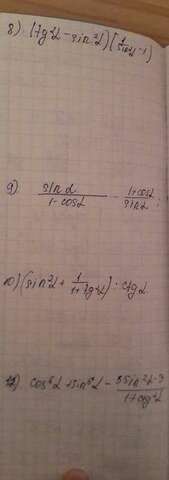 8) (tg²α - sin²α)(1/sin²α - 1)
9) sinα/(1-cosα) - (1+cosα)/sinα;
10) (sin²α + 1/(1+tg²α)) : ctgα
12) cos⁴α + sin⁴α -